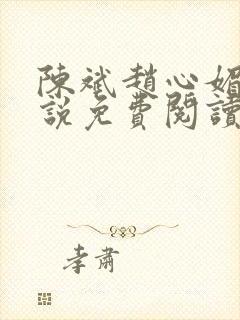 陳斌趙心媚
說免費閱讀
孝肅